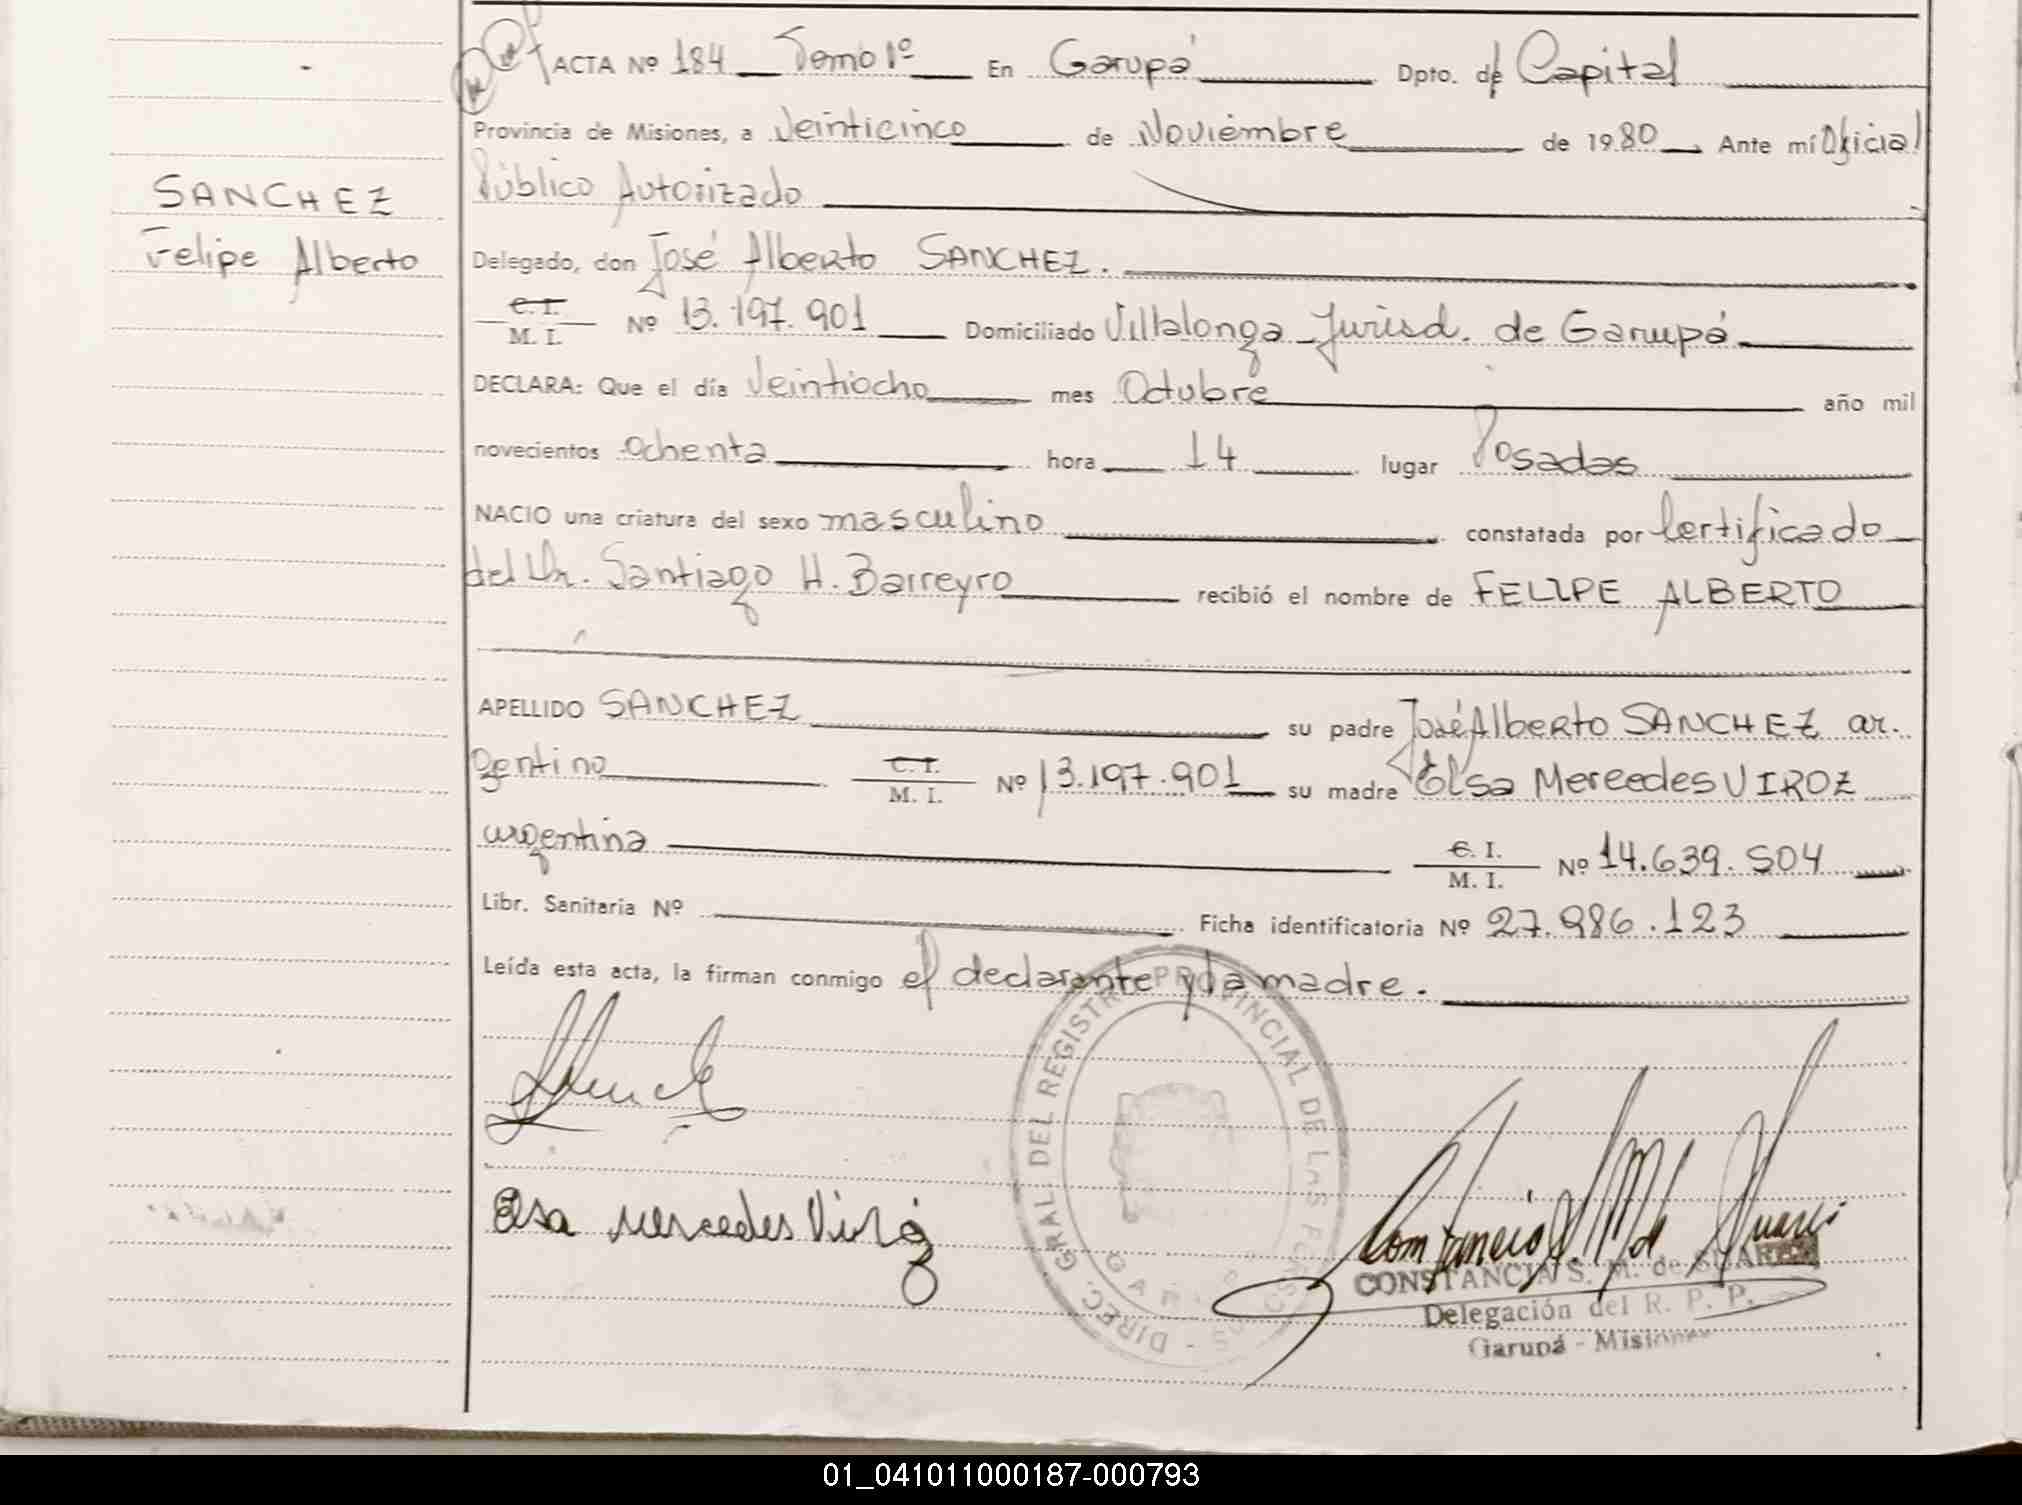 ACTA Nº 184 Tomo 1º En Garupá Dpto. de Capital
Provincia de Misiones, a Veinticinco de Noviembre de 1980 Ante mí Oficial
Público Autorizado
SANCHEZ
Felipe Alberto
Delegado, don José Alberto SANCHEZ.
C. I.
M. I. Nº 13.197.901 Domiciliado Villalonga Jurisd. de Garupá
DECLARA: Que el día Veintiocho mes Octubre año mil
novecientos ochenta hora 14 lugar Posadas
NACIO una criatura del sexo masculino constatada por Certificado
del Dr. Santiago H. Barreyro recibió el nombre de FELIPE ALBERTO
APELLIDO SANCHEZ su padre José Alberto SANCHEZ ar.
gentino C. I. M. I. Nº 13.197.901 su madre Elsa Mercedes VIROZ
argentina C. I. M. I. Nº 14.639.504
Libr. Sanitaria Nº Ficha identificatoria Nº 27.986.123
Leída esta acta, la firman conmigo el declarante y la madre.
DIREC. GRAL. DEL REGISTRO PROVINCIAL DE LAS PERSONAS
Elsa Mercedes Viroz
Constancia S. M. de Suarez
CONSTANCIA S. M. de SUAREZ
Delegación del R. P. P.
Garupá - Misiones
01_041011000187-000793